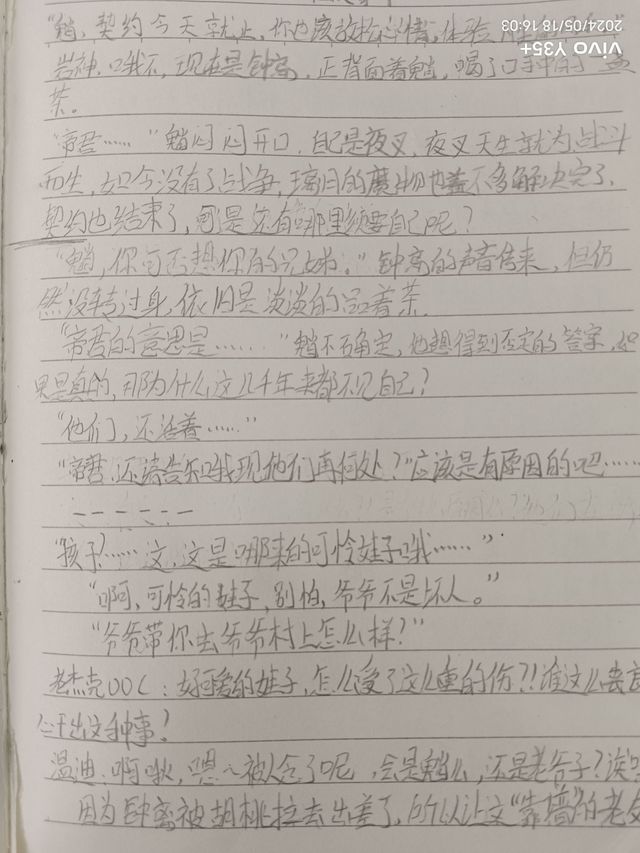 2024/05/18 16:03
vivo Y35+
"魈,契约今天就止,你也该放松心情,体验
岩神,哦不,现在是钟离,正背面着魈,喝了口手中的
茶。
"帝君……"魈闷闷开口,自己是夜叉,夜叉天生就为战斗
而生,如今没有了战争,璃月的魔物也差不多解决完了,
契约也结束了,可是还有哪里须要自己呢?
"魈,你可否想你的兄姊。"钟离的声音传来,但仍
然没转过身,依旧是淡淡的品着茶.
"帝君的意思是……"魈不确定,他想得到否定的答案,如
果是真的,那为什么这几千年来都不见自己?
"他们,还活着……"
"帝君,还请告知哦现他们再何处?"应该是有原因的吧……
------
"孩子?……这,这是哪来的可怜娃子哦……"
"啊,可怜的娃子,别怕,爷爷不是坏人。"
"爷爷带你去爷爷村上怎么样?"
老杰克OOC:好可爱的娃子,怎么受了这么重的伤?!谁这么丧
干出这种事!
温迪:啊啾,嗯~被人念了呢,会是魈么,还是老爷子?诶
因为钟离被胡桃拉去出差了,所以让这"靠墙"的老